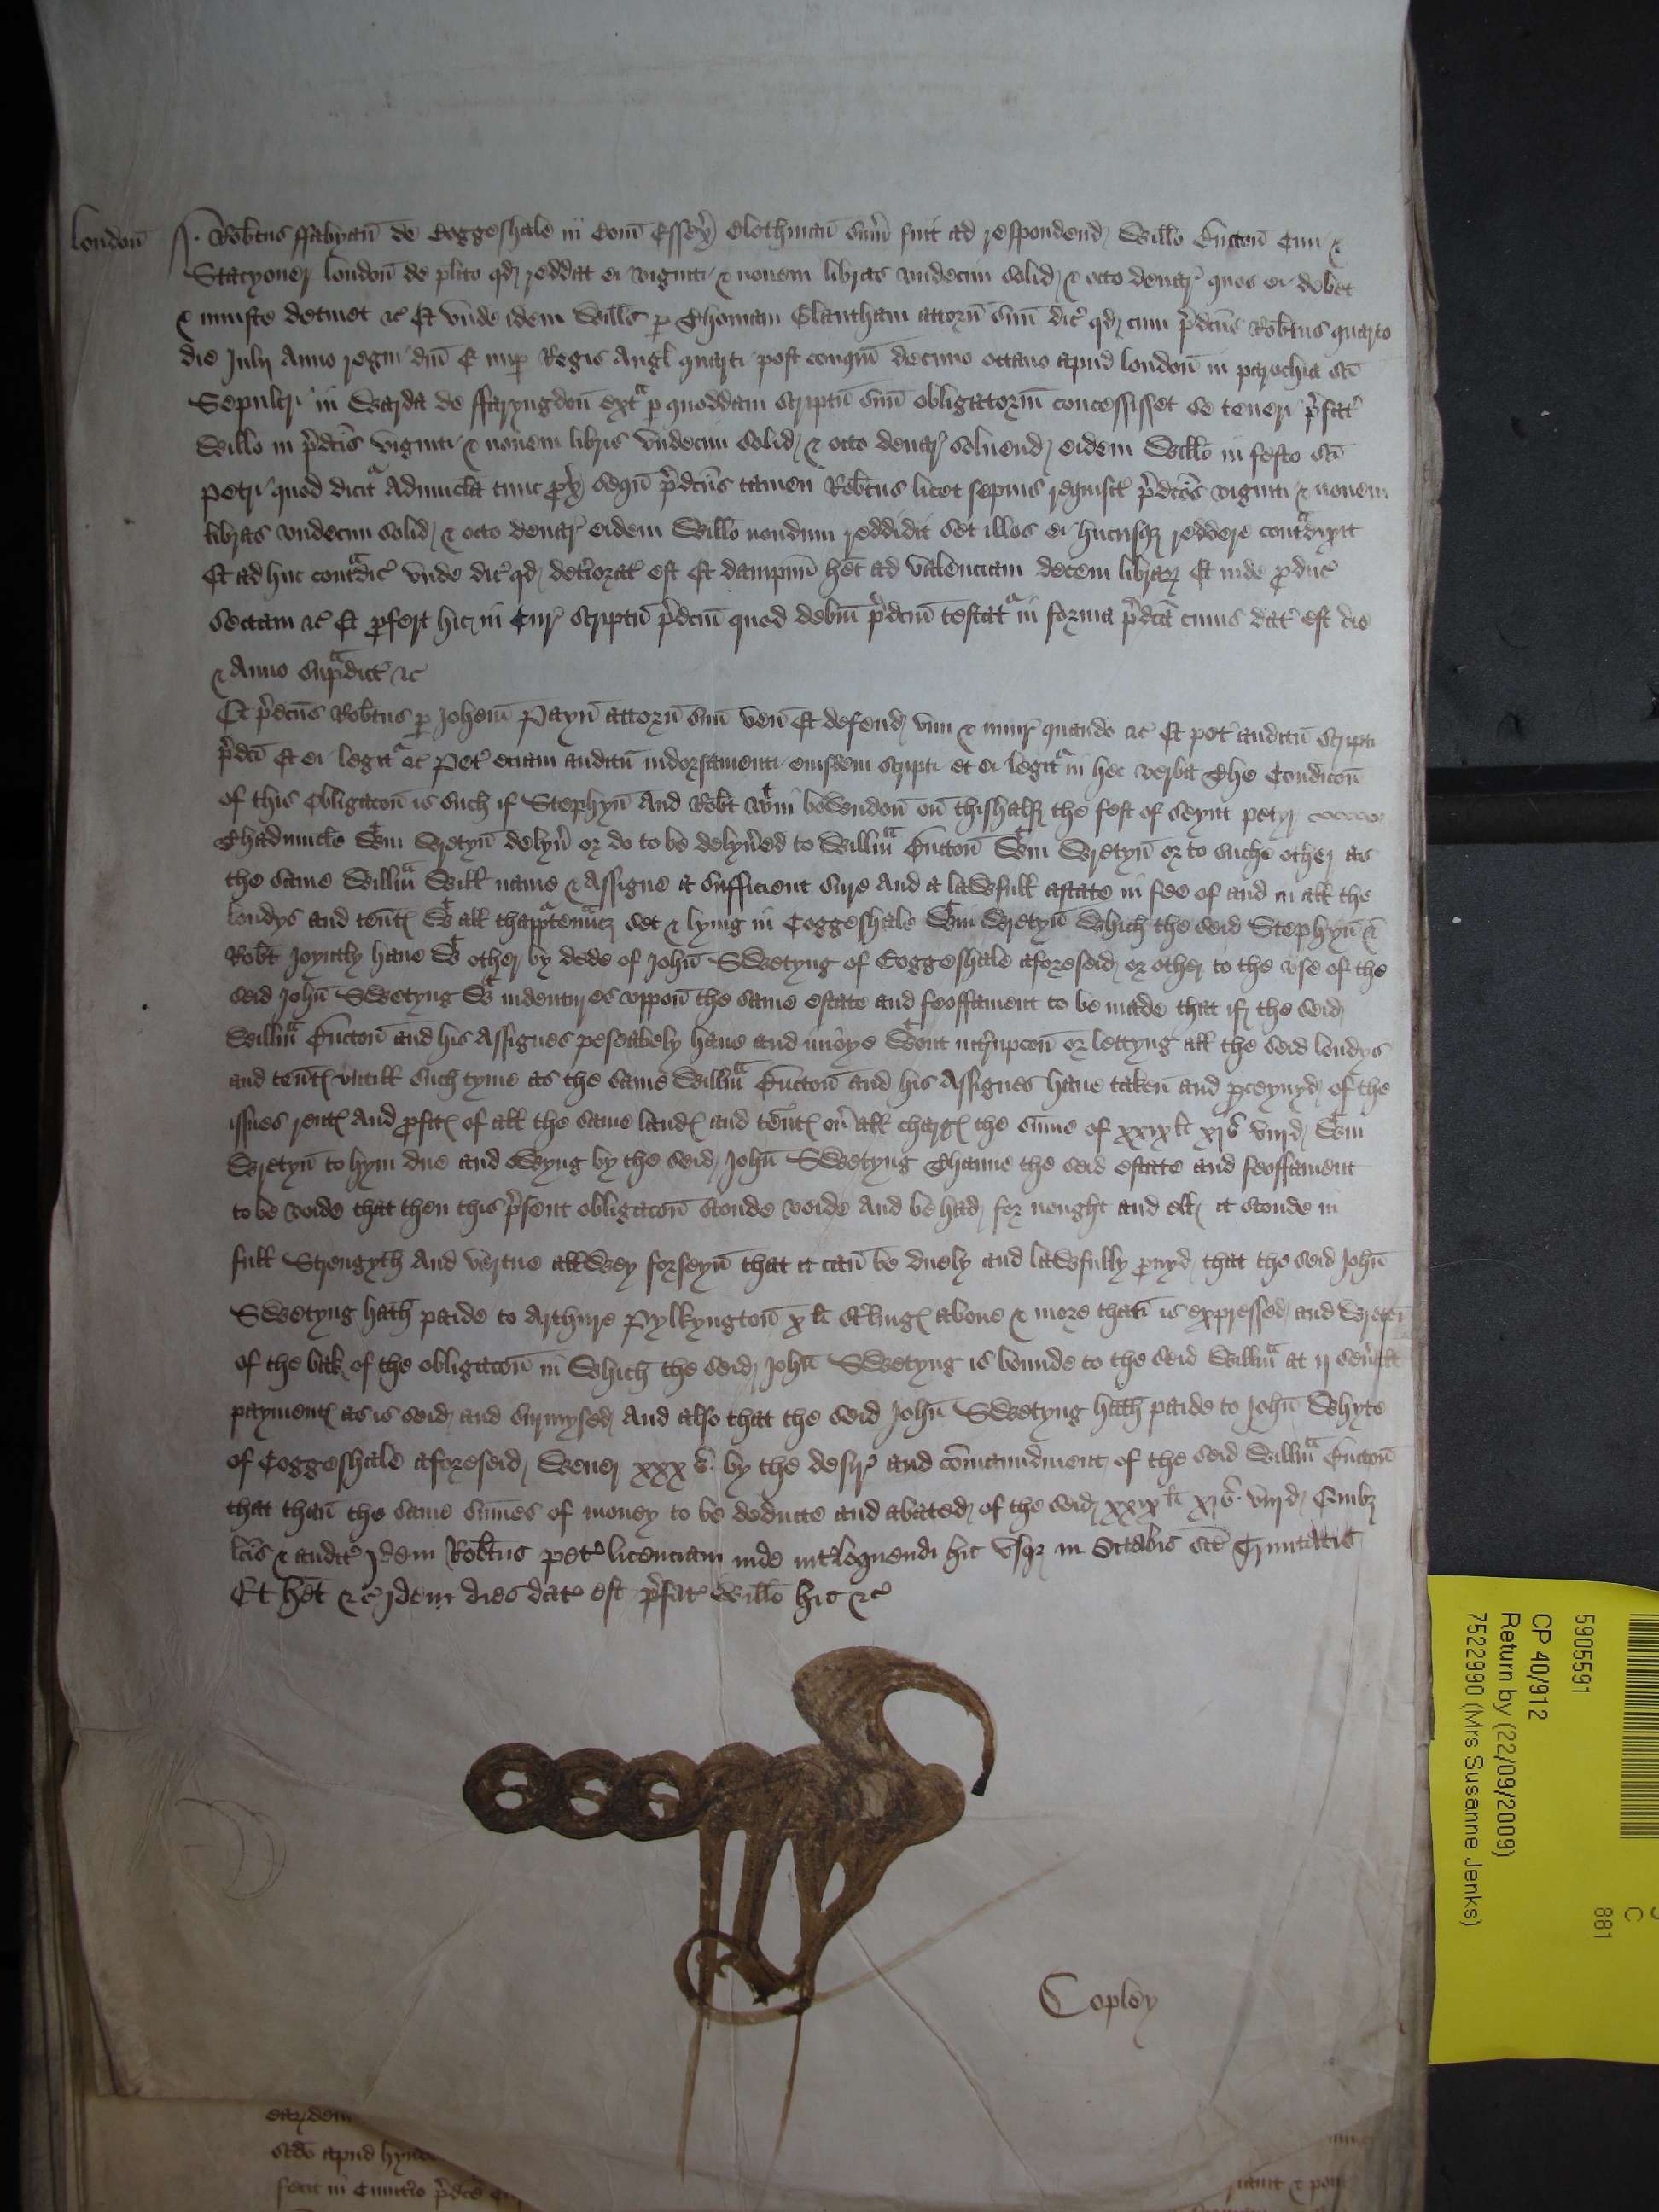 londoñ Robtus ffabyañ de Coggeshale in Com̄ Essex̉ Clothmañ sum̄ fuit ad respondend Willo Cuttoñ Ciui &
Stacyoner londoñ de plito qd reddat ei viginti & nouem libras vndecim solid & octo denar̉ quos ei debet
& iniuste detinet &c Et vnde idem Wills p Thomam Glantham attorñ suū dic̉ qd cum p̉dcūs Robtus quarto
die Julij Anno regni dñi E nup Regis Angl quarti post conqm̄ decimo octauo apud londoñ in parochia sc̄i
Sepulcri in Warda de ffaryngdoñ extᵃ p quoddam scriptū suū obligatoriū concessisset se teneri p̉fat̉
Willo in p̉dc̄is viginti & nouem libris vndecim solid & octo denar̉ soluend eidem Willo in festo sc̄i
Petri quod dicitᵃ Aduincla tunc px̉ sequ p̉dcūs tamen Robtus licet sepius requisit̉ p̉dcās viginti & nouem
libras vndecim solid & octo denar̉ eidem Willo nondum reddidit set illos ei hucusqz reddere contᵃdixit
Et adhuc contᵃdic̉ vnde dic̉ qd det̉iorat̉ est Et dampnū het ad valenciam decem librar Et inde pduc̉
sectam &c Et pfert hic in Cur̉ scriptū p̉dcm̄ quod debitū p̉dcm̄ testatᵃ in forma p̉dcā cuius dat̉ est die
& Anno supᵃdict̉ &c
Et p̉dcūs Robtus p Johem̄ Payñ attorñ suū veñ Et defend vim & iniur̉ quando &c Et pet̉ auditū scripti
p̉dcī Et ei legitᵃ &c Pet̉ eciam auditū indorsamenti eiusdem scripti et ei legitᵃ in hec verba The Condicoñ
of this obligacoñ is such if Stephyñ And Robt wᵗin bowndoñ oñ thishalf the fest of Seynt petyr
Thaduincle Wᵗin Wretyñ delyủ or do to be delyủed to Willmᵃ Cuttoñ Wᵗin Wretyñ or to suche other as
the same Willmᵃ Will name & Assigne a sufficient sure And a lawfull astate in fee of and in all the
londys and tent̄ Wᵗ all thapptenncz set & lying in Coggeshale Wᵗin Wretyñ Which the seid Stephyñ &
Robt Joyntly haue Wᵗ other by dede of Johñ Swetyng of Coggeshale aforeseid or other to the vse of the
seid Johñ Swetyng Wᵗ indentures vppoñ the same estate and feoffament to be made that if the seid
Willmᵃ Cuttoñ and his Assignes peseabely haue and inioye Wᵗout int̉rupcoñ or lettyng all the seid londys
and tent̄ vntill such tyme as the same Willmᵃ Cuttoñ and his Assignes haue takeñ and pceyuyd of the
issues rent̄ And pfit̄ of all the same land̄ and tent̄ oủ all charḡ the sūme of xxix li xjs̉ viijd Wᵗin
Wretyñ to hym due and owyng by the seid Johñ Swetyng Thanne the seid estate and feoffament
to be voide that then this p̉sent obligacoñ stonde voide And be had for nought and ell it stonde in
full Strengyth And vertue allwey forseyñ that it cañ be duely and lawfully puyd that the seid Johñ
Swetyng hath paide to Arthure Pylkyngtoñ x li st̉linḡ aboue & more thañ is expressed and Wreteñ
of the bak of the obligacoñ in Which the seid Johñ Swetyng is bounde to the seid Willmᵃ at ij seủall
payment̄ as is seid and surmysed And also that the seid Johñ Swetyng hath paide to Johñ Whyte
of Coggeshale aforeseid Weuer xxx s̉ by the desyr̉ and cōmaundment of the seid Willmᵃ Cuttoñ
that thañ the same sūmes of money to be deducte and abated of the seid xxix li xjs̉ viijd Quibz
lc̄is & audit̉ Idem Robtus pet̉ licenciam inde int̉loquendi hic vsqz in Octabis sc̄e Trinitatis
Et het &c Idem dies dat̉ est p̉fat̉ Willo hic &c
Copley
eardem
scdo apud hyn
5905591
CP 40/912
Return by (22/09/2009)
7522990 (Mrs Susanne Jenks)
C
881